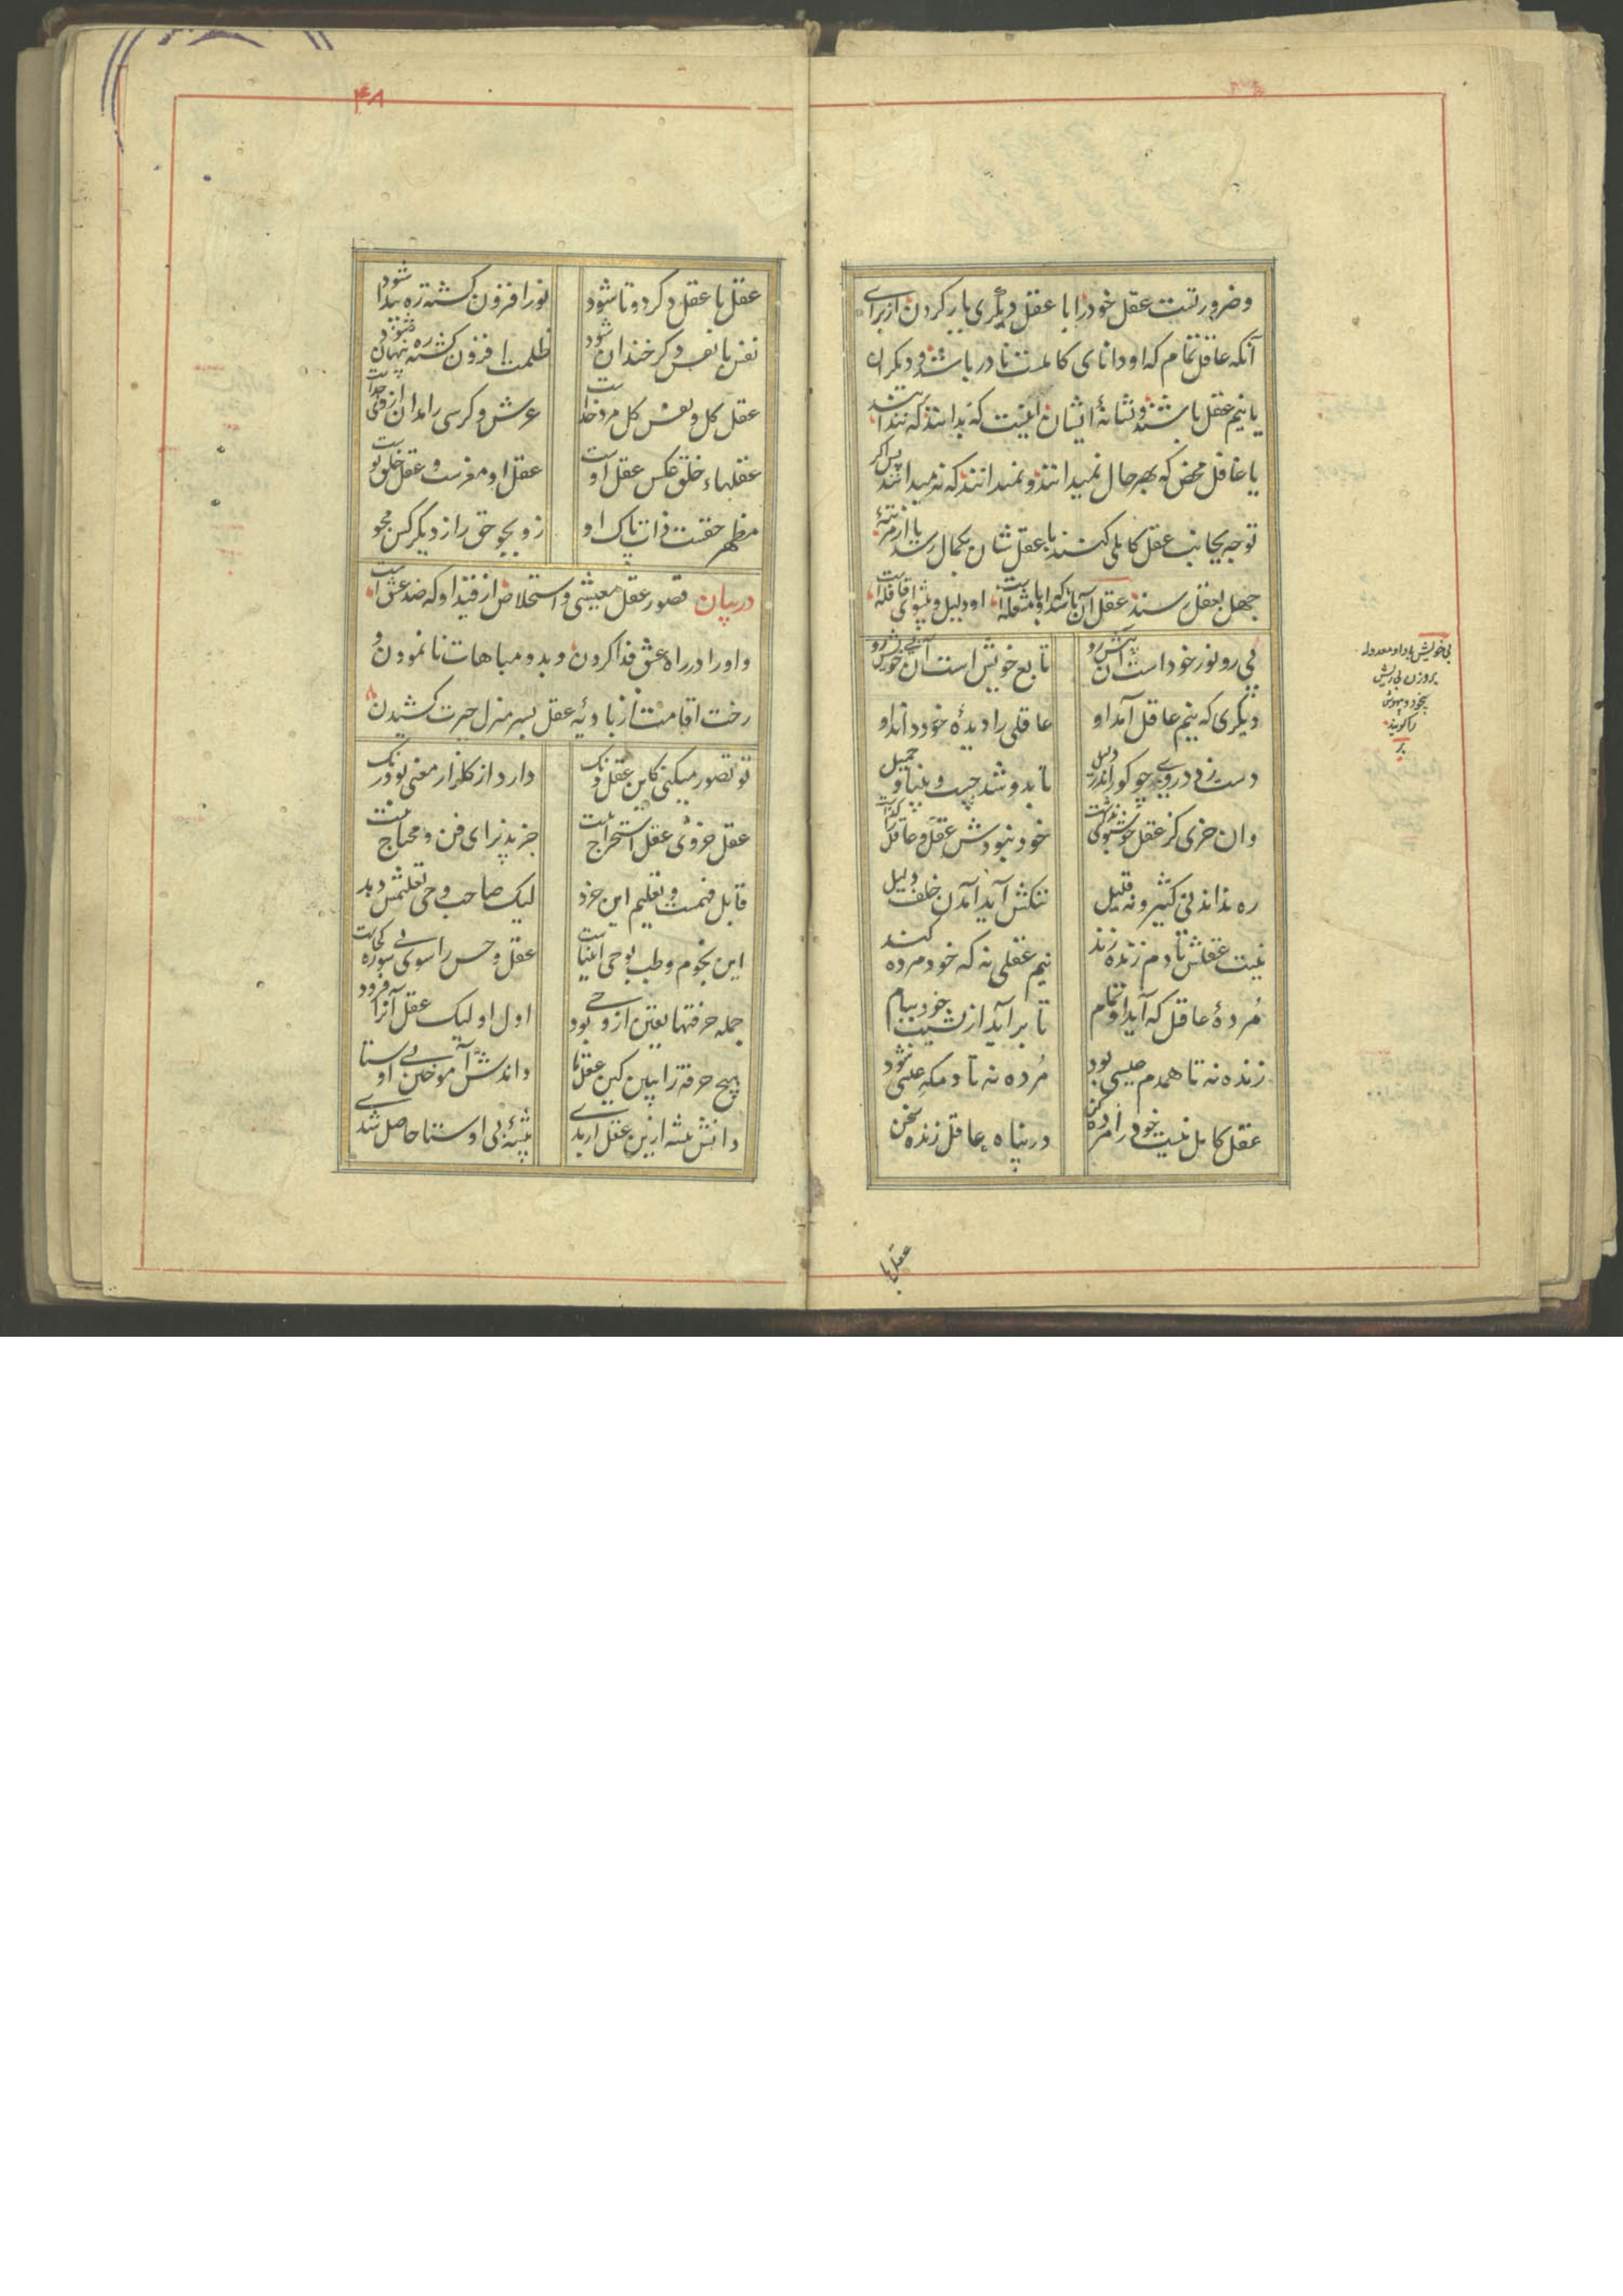 وضرورتست عقل خود را با عقل دیگری یار کردن از برای
آنکه عاقل تمام که او دانای کاملست نادر باشد و دیگران
یا نیم عقل باشند و نشانهٔ ایشان اینست که بدانند که ندانند
یا غافل محض که بهر حال نمیدانند و نمیدانند که نمیدانند پس اگر
توجه بجانب عقل کاملی کنند با عقل شان بکمال رسد یا از مرتبهٔ
جهل بعقل رسند عاقل آن باشد که او با مشعله است او دلیل و پیشوای قافله است
پی رو نور خود است آن پیش رو تابع خویش است آن بی خویش رو
دیگری که نیم عاقل آمد او عاقلی را دیدهٔ خود داند او
دست زد در وی چو کور اندر دلیل تا بدو شد چست و بینا و جمیل
وان خری کز عقل جو سنگی نداشت خود نبودش عقل و عاقل را گذاشت
ره نداند نی کثیر و نه قلیل ننگش آید آمدن خلف دلیل
نیست عقلش تا دم زنده زند نیم عقلی نه که خود مرده کند
مردهٔ عاقل که آید او تمام تا برآید از نشیب خود ببام
زنده نه تا همدم عیسی بود مرده نه تا دمگه عیسی شود
عقل کامل نیست خود را مرده کن در پناه عاقل زنده سخن
بی خویش با واو معدوله
بروزن بی ریش
بیخود و بیهوش
را گویند
عقل با
۴۸
عقل با عقل دگر دوتا شود نور افزون گشت و ره پیدا شود
نفس با نفس دگر خندان شود ظلمت افزون گشت ره پنهان شود
عقل کل و نفس کل مرد خداست عرش و کرسی را مدان از وی جداست
عقلهاء خلق عکس عقل اوست عقل او مغزست و عقل خلق پوست
مظهر حقست ذات پاک او زو بجو حق را ز دیگر کس مجو
در بیان قصور عقل معیشی و استخلاص از قید او که ضد عشق است
و او را در راه عشق فدا کردن و بدو مباهات نانمودن و
رخت اقامت از بادیهٔ عقل بسر منزل حیرت کشیدن
تو تصور میکنی کاین عقل و نگ دارد از گلزار معنی بو و رنگ
عقل جزوی عقل استخراج نیست جز پذیرای فن و محتاج نیست
قابل فهمست و تعلیم این خرد لیک صاحب وحی تعلیمش دهد
این نجوم و طب بوحی انبیاست عقل و حس را سوی بی سو ره کجاست
جمله حرفتها یقین از وحی بود اول او لیک عقل آنرا فزود
هیچ حرفت را ببین کین عقل ما داندش آموختن بی اوستا
دانش پیشه ازین عقل ار بدی پیشهٔ بی اوستا حاصل شدی